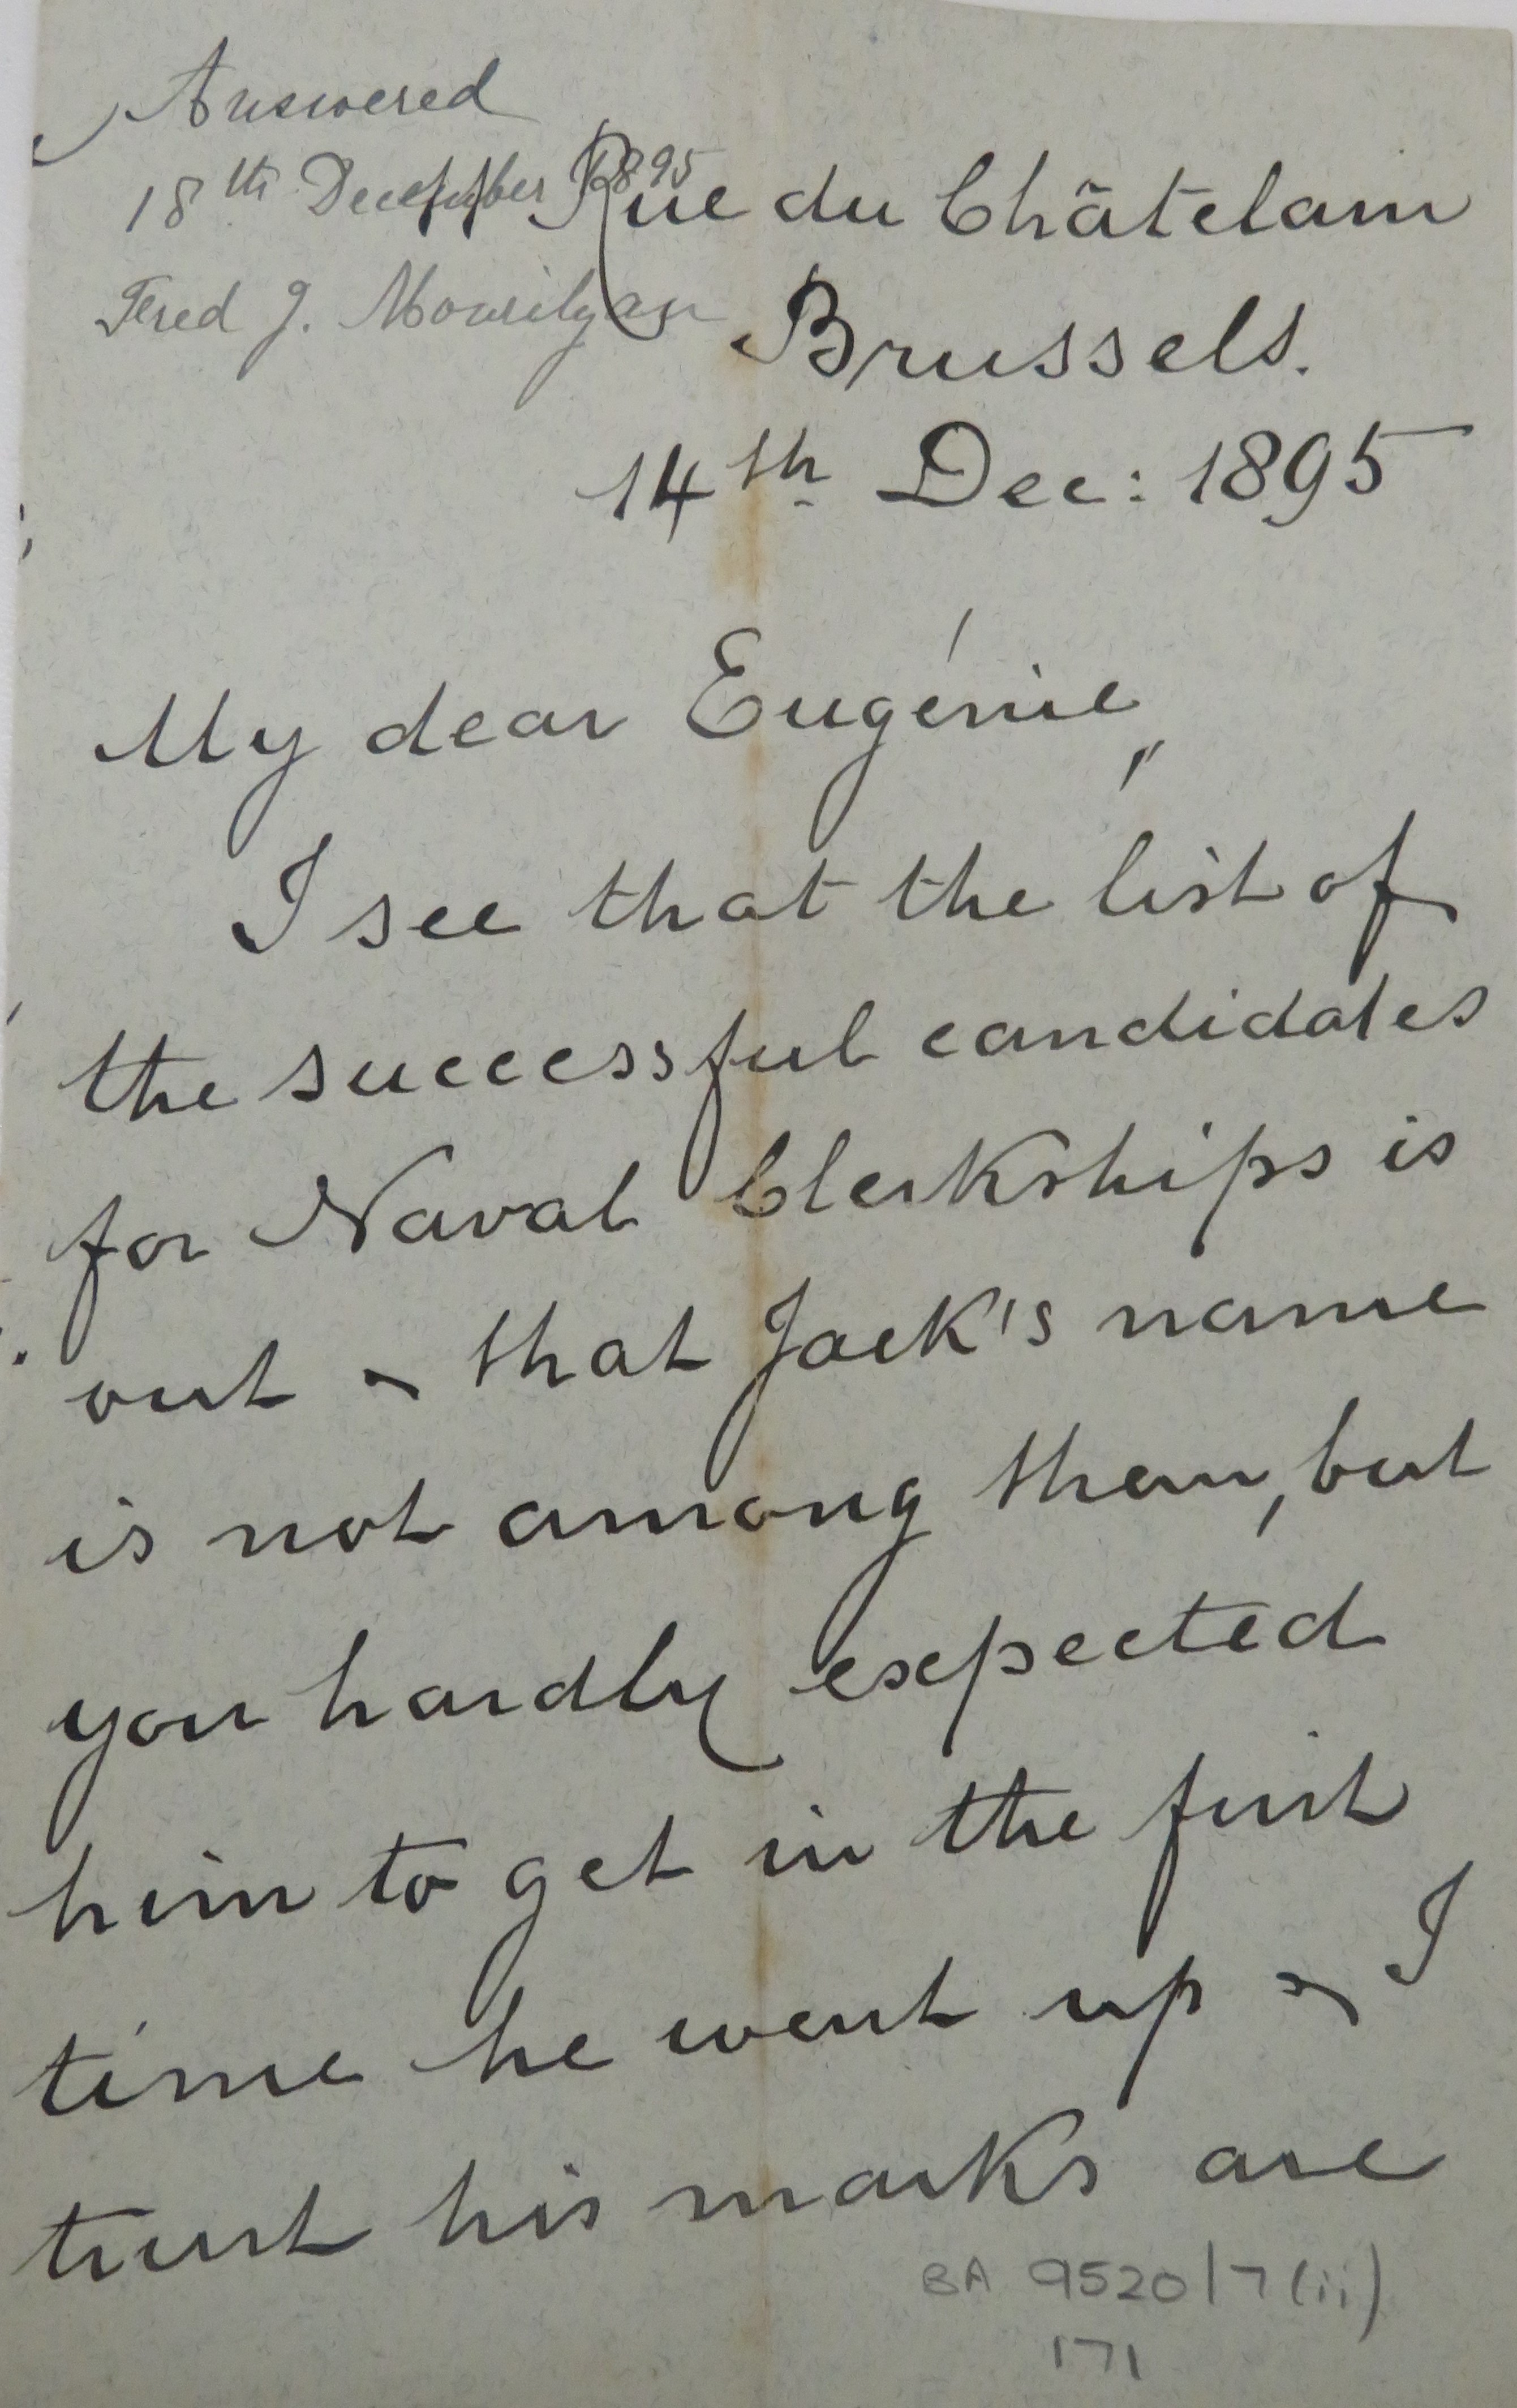 Answered
18th December 1895
Fred J. Mourilyan
77 Rue du Châtelain
Brussels.
14th Dec: 1895
My dear Eugénie,
I see that the list of
the successful candidates
for Naval Clerkships is
out & that Jack's name
is not among them, but
you hardly expected
him to get in the first
time he went up & I
trust his marks are
BA 9520/7(ii)
171